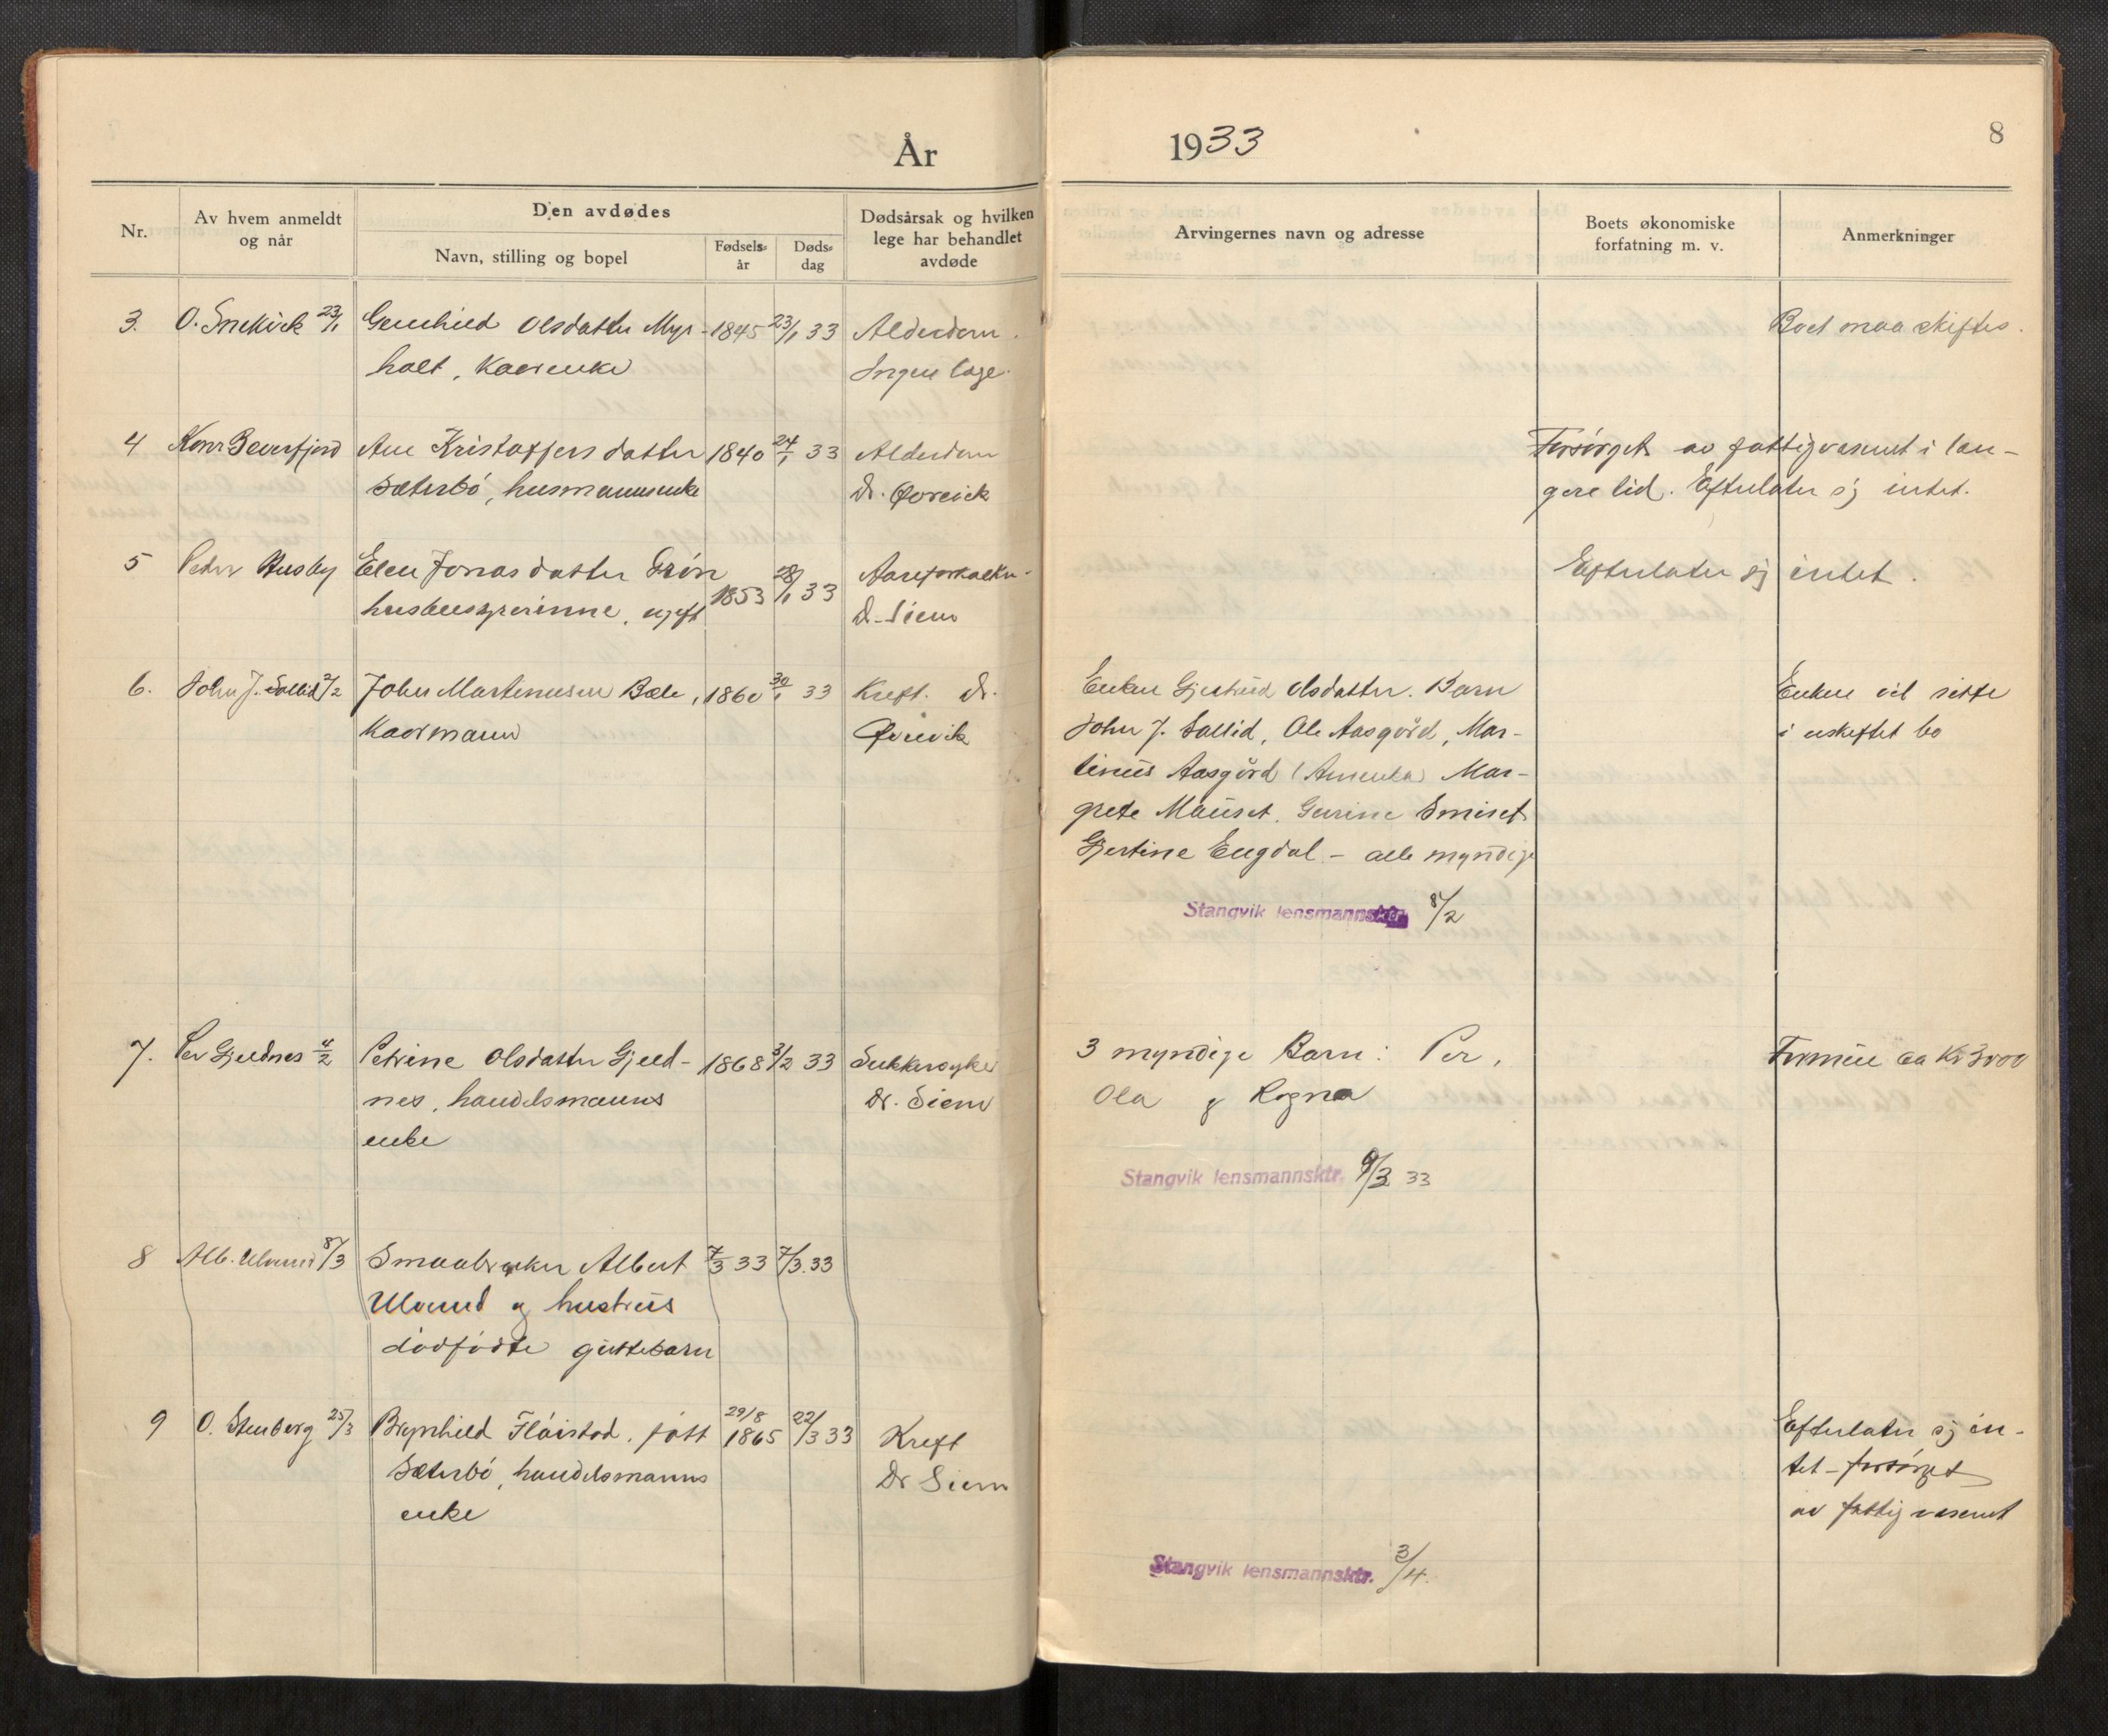 År 1933
8
Nr.
Av hvem anmeldt
og når
Den avdødes
Navn, stilling og bopel
Fødsels-
år
Døds-
dag
Dødsårsak og hvilken
lege har behandlet
avdøde
Arvingernes navn og adresse
Boets økonomiske
forfatning m. v.
Anmerkninger
3. O. 23/1 Gunhild Olsdatter Myr- 1845 23/1 33 Alderdom. Boet maa skiftes.
holt, Kaarenke Ingen læge.
4 Konr Beverfjord Ane Kristoffersdatter 1840 24/1 33 Alderdom Forsørget av fattigvæsenet i læn-
Sæterbö, husmannsenke Dr. Qvervik gere tid. Efterlater sig intet.
5 Peder Husby Elen Jonasdatter Grön 1853 28/1 33 Aareforkalkn. Efterlater sig intet.
husbestyrerinne, ugift Dr. Siem
6. John J. Sollid 2/2 John Martinusen Bæle, 1860 30/1 33 Kreft. Dr. Enken Gjertrud Olsdatter. Barn Enken vil sitte
Kaarmann Qvervik John J. Sollid, Ole Aasgård, Mar- i uskiftet bo
tinus Aasgård (Amerika) Mar-
grete Mauset. Gurine Smiset
Gjertine Engdal - alle myndige
Stangvik lensmannsktr. 8/2
7. Per Gjeldnes 4/2 Petrine Olsdatter Gjeld- 1868 3/2 33 Sukkersyke 3 myndige Barn: Per, Formue ca Kr 3000
nes, handelsmanns Dr. Siem Ola og Ragna
enke
Stangvik lensmannsktr. 9/3 33
8 Alb. Ulvund 8/3 Smaabruker Albert 7/3 33 7/3.33
Ulvund og hustrus
dödfödte guttebarn
9 O. Stenberg 25/3 Brynhild Flöistad, födt 29/8 1865 22/3 33 Kreft Efterlater sig in-
Sæterbö, handelsmanns Dr Siem tet - forsörget
enke av fattigvæsenet
Stangvik lensmannsktr. 3/4.